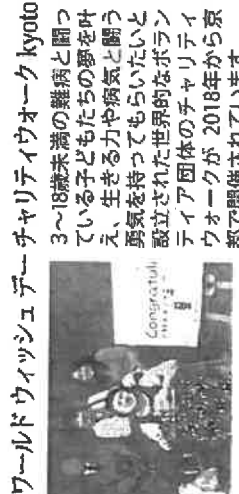 ワールド ウィッシュ デー チャリティウォーク kyoto
3～18歳未満の難病と闘っ
ている子どもたちの夢を叶
え、生きる力や病気と闘う
勇気を持ってもらいたいと
設立された世界的なボラン
ティア団体のチャリティ
ウォークが 2018年から京
都で開催されています
Congratul